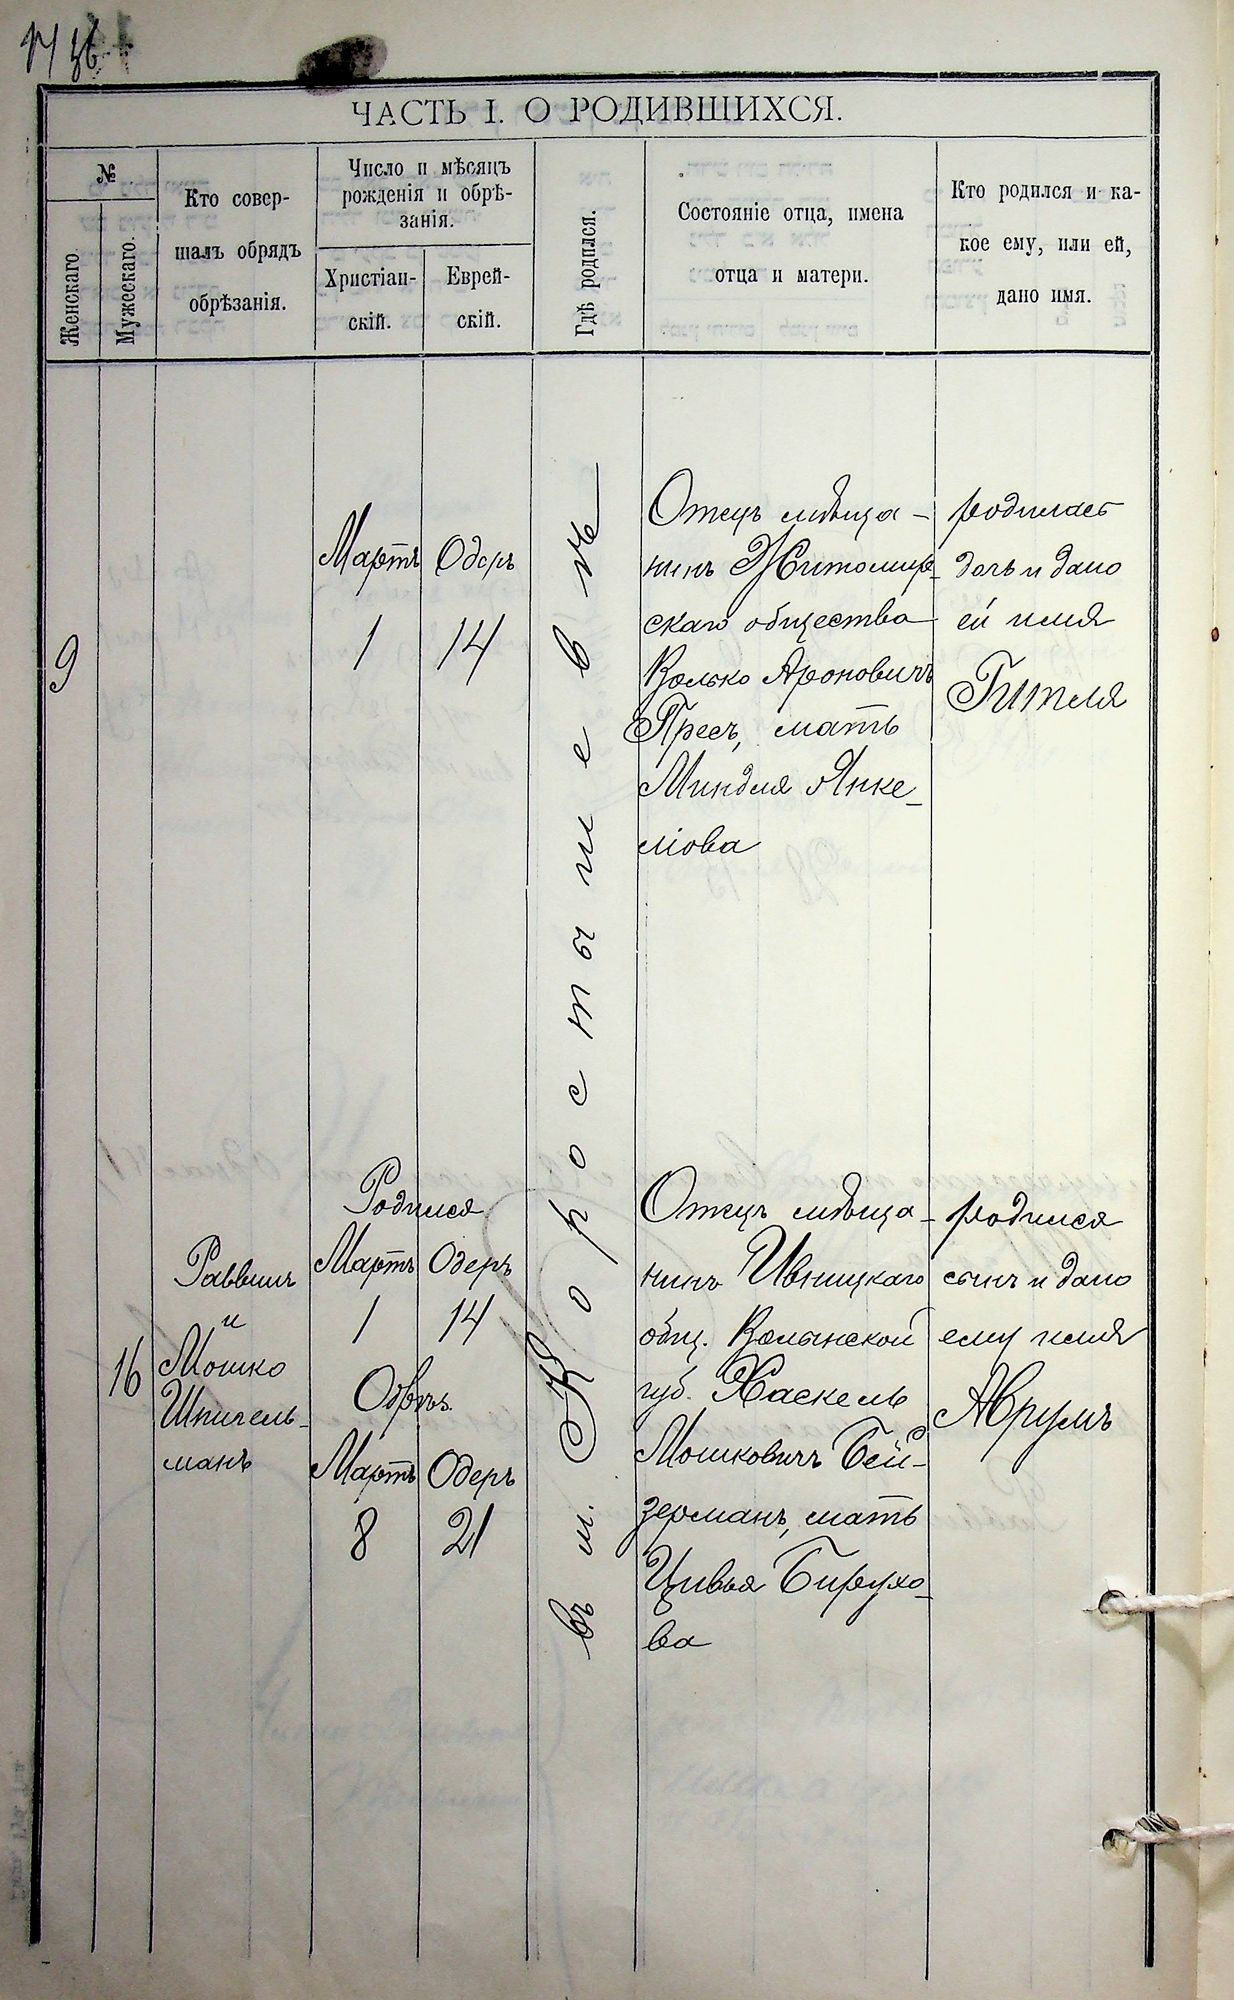 ЧАСТЬ I. О РОДИВШИХСЯ.
№
Женскаго.
Мужескаго.
Кто совер-
шалъ обрядъ
обрѣзанія.
Число и мѣсяцъ
рожденія и обрѣ-
занія.
Христіан-
скій.
Еврей-
скій.
Гдѣ родился.
Состояніе отца, имена
отца и матери.
Кто родился и ка-
кое ему, или ей,
дано имя.
9
Мартъ
1
Одеръ
14
въ м. Коростышевѣ
Отецъ мѣща-
нинъ Житомир-
скаго общества
Волько Ароновичъ
Пресъ, мать
Миндля Янке-
лiова
родилась
дочь и дано
ей имя
Гитля
16
Раввинъ
и
Мошко
Шпигель-
манъ
Родился
Мартъ Одеръ
1 14
Обрѣз.
Мартъ Одеръ
8 21
Отецъ мѣща-
нинъ Ивницкаго
общ. Волынской
губ. Хаскель
Мошковичъ Бей-
зерманъ, мать
Цивья Бирухо-
ва
родился
сынъ и дано
ему имя
Аврумъ